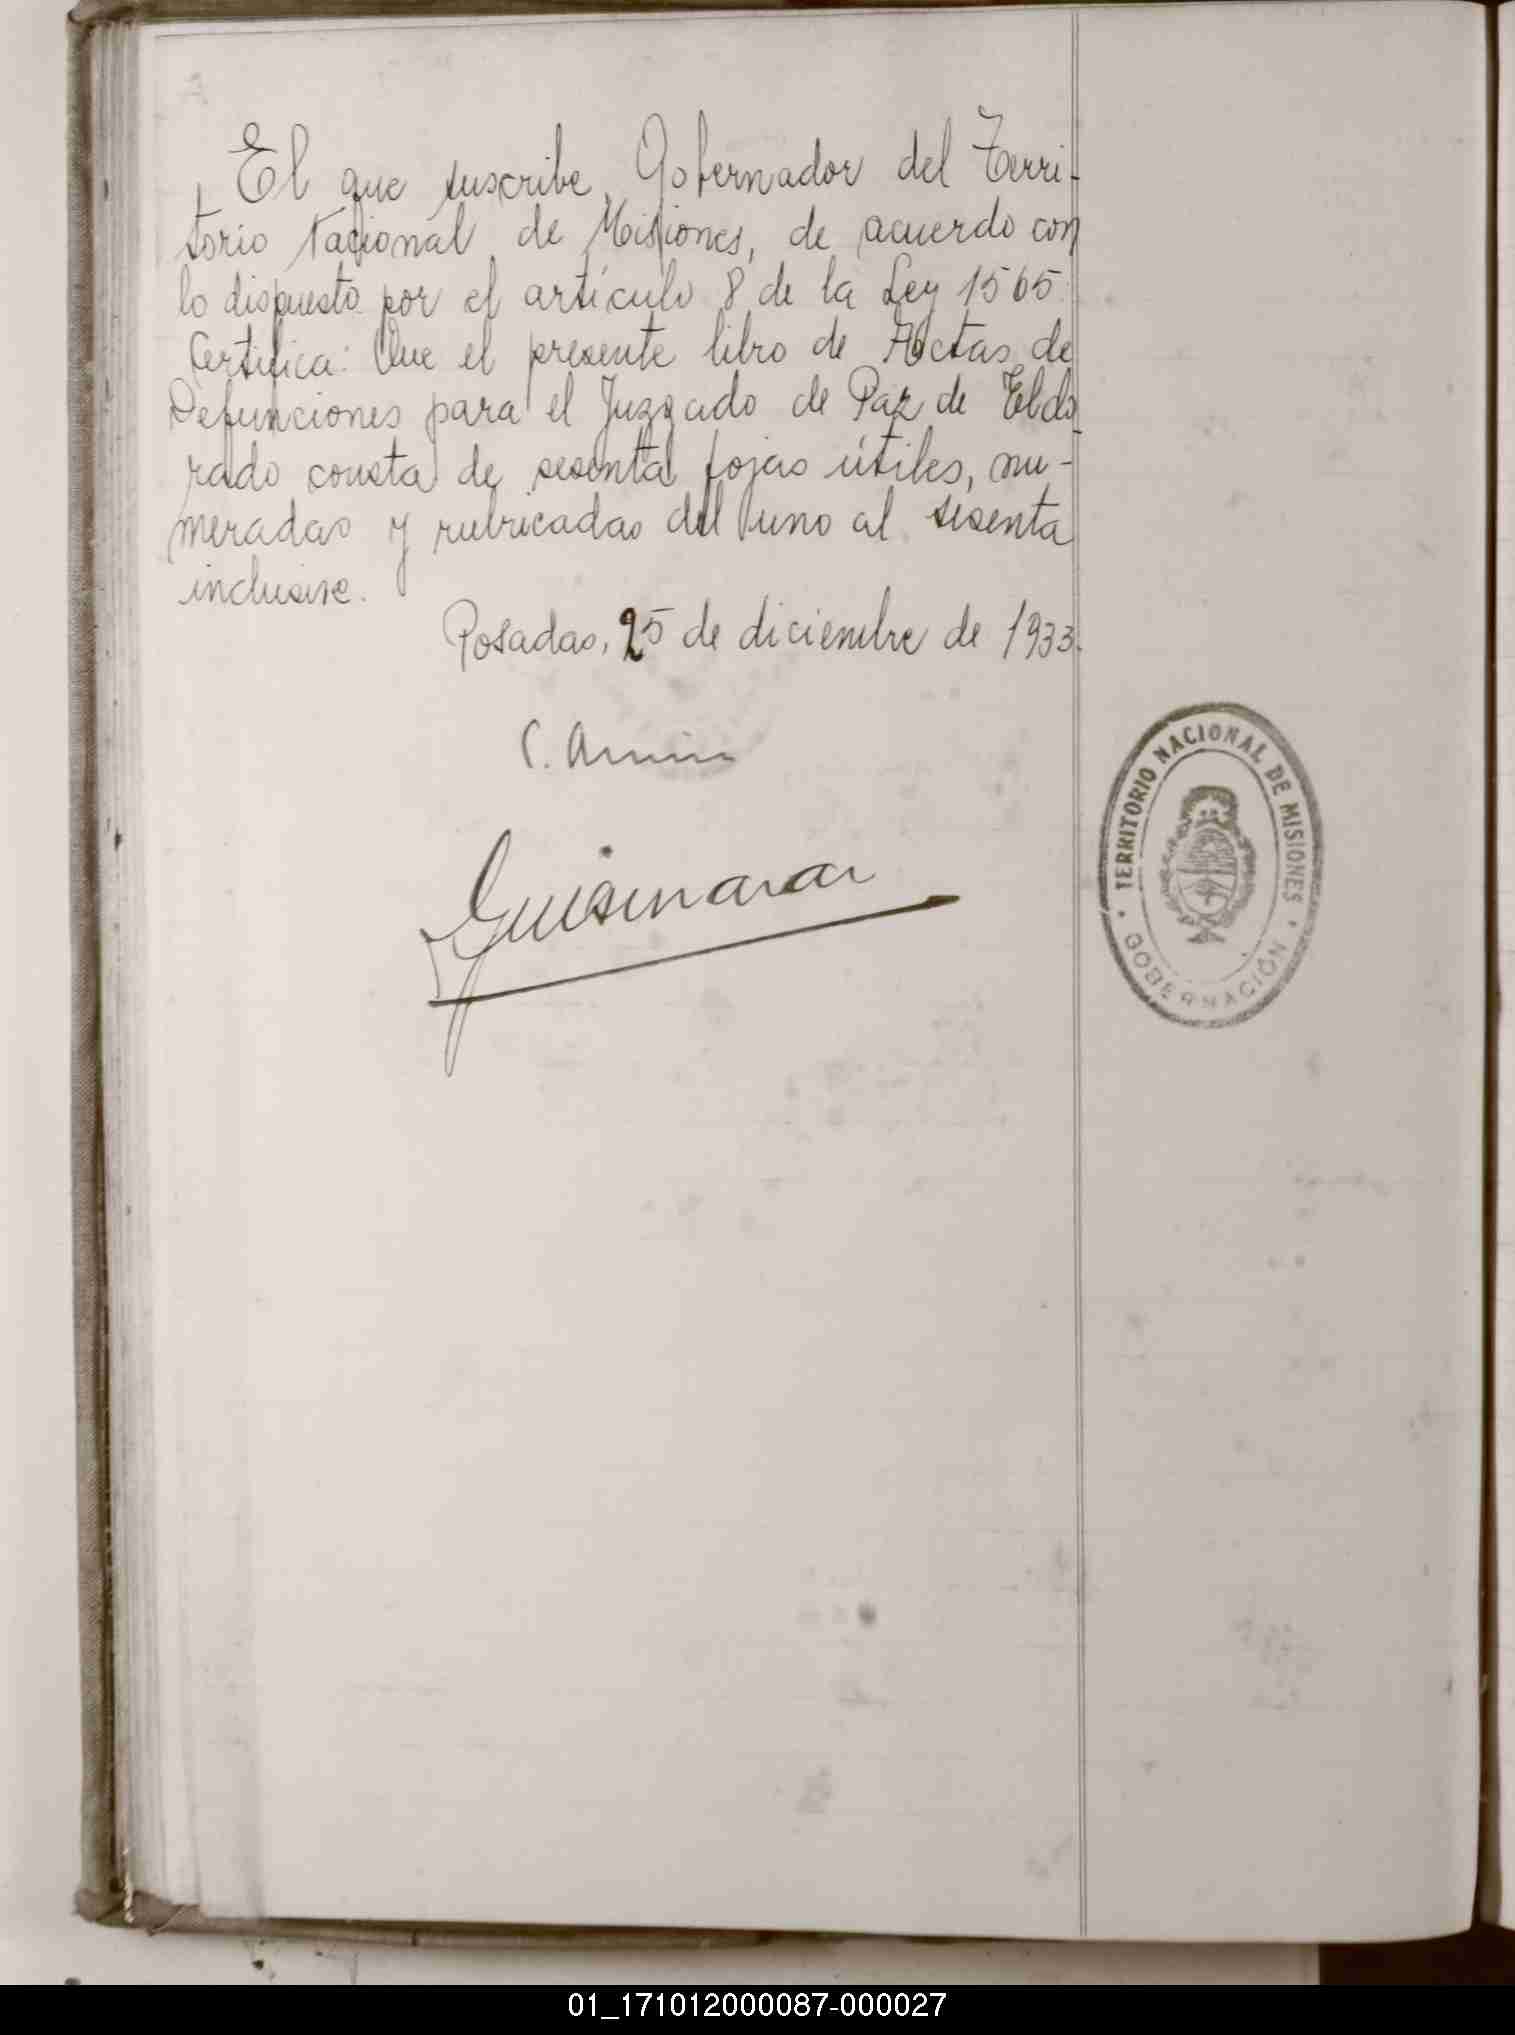 El que suscribe, Gobernador del Terri-
torio Nacional de Misiones, de acuerdo con
lo dispuesto por el artículo 8 de la Ley 1565.
Certifica: Que el presente libro de Actas de
Defunciones para el Juzgado de Paz de Eldo
rado consta de sesenta fojas útiles, nu-
meradas y rubricadas del uno al sesenta
inclusive.
Posadas, 25 de diciembre de 1933.
TERRITORIO NACIONAL DE MISIONES
GOBERNACIÓN
01_171012000087-000027